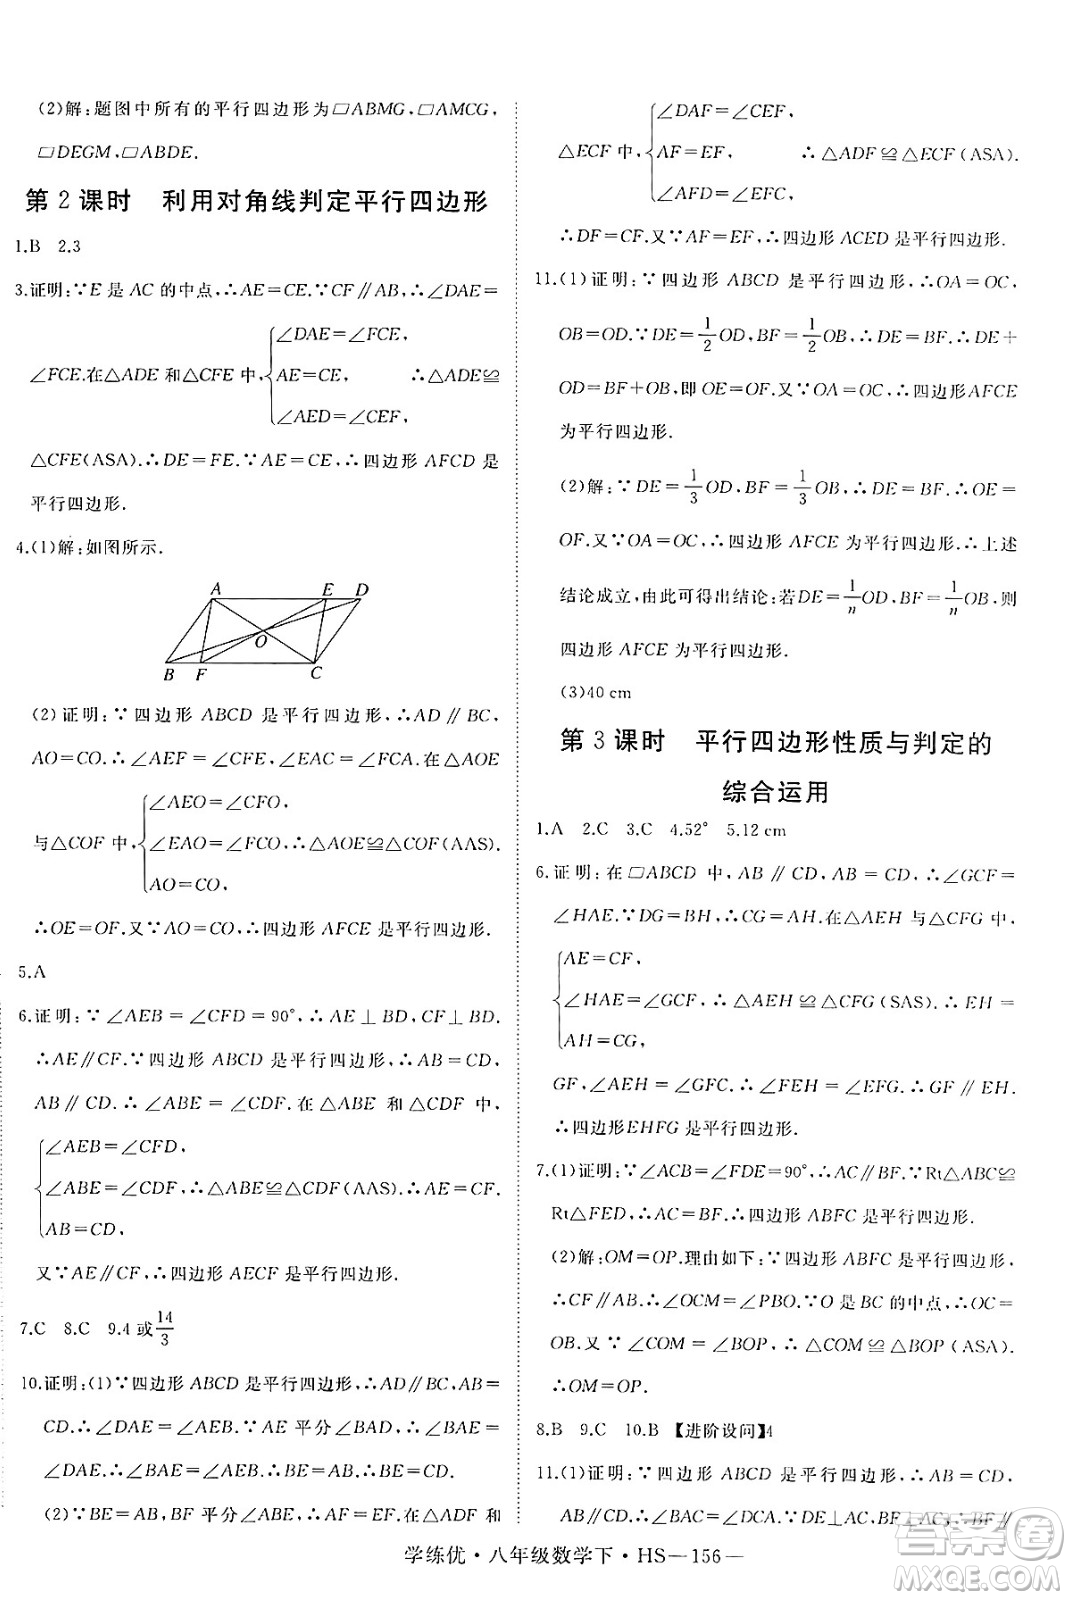 (2)解:题图中所有的平行四边形为▱ABMG,▱AMCG,
▱DEGM,▱ABDE.
第 2 课时 利用对角线判定平行四边形
1.B 2.3
3.证明:∵E 是 AC 的中点,∴AE=CE.∵CF∥AB,∴∠DAE=
∠DAE=∠FCE,
∠FCE.在△ADE 和△CFE 中,{AE=CE, ∴△ADE≌
∠AED=∠CEF,
△CFE(ASA).∴DE=FE.∵AE=CE,∴四边形 AFCD 是
平行四边形.
4.(1)解:如图所示.
A E D
O
B F C
(2)证明:∵四边形 ABCD 是平行四边形,∴AD∥BC,
AO=CO.∴∠AEO=∠CFO,∠EAO=∠FCO.在△AOE
∠AEO=∠CFO,
与△COF 中,{∠EAO=∠FCO,∴△AOE≌△COF(AAS).
AO=CO,
∴OE=OF.又∵AO=CO,∴四边形 AFCE 是平行四边形.
5.A
6.证明:∵∠AEB=∠CFD=90°,∴AE⊥BD,CF⊥BD.
∴AE∥CF.∵四边形 ABCD 是平行四边形,∴AB=CD,
AB∥CD.∴∠ABE=∠CDF.在△ABE 和△CDF 中,
{∠AEB=∠CFD,
∠ABE=∠CDF,∴△ABE≌△CDF(AAS).∴AE=CF.
AB=CD,
又∵AE∥CF,∴四边形 AECF 是平行四边形.
7.C 8.C 9.4 或14/3
10.证明:(1)∵四边形 ABCD 是平行四边形,∴AD∥BC,AB=
CD.∴∠DAE=∠AEB.∵AE 平分∠BAD,∴∠BAE=
∠DAE.∴∠BAE=∠AEB.∴AB=BE.∴BE=CD.
(2)∵BE=AB,BF 平分∠ABE,∴AF=EF.在△ADF 和
∠DAF=∠CEF,
△ECF 中,{AF=EF, ∴△ADF≌△ECF(ASA).
∠AFD=∠EFC,
∴DF=CF.又∵AF=EF,∴四边形 ACED 是平行四边形.
11.(1)证明:∵四边形 ABCD 是平行四边形,∴OA=OC,
OB=OD.∵DE=1/2OD,BF=1/2OB,∴DE=BF.∴DE+
OD=BF+OB,即 OE=OF.又∵OA=OC,∴四边形 AFCE
为平行四边形.
(2)解:∵DE=1/3OD,BF=1/3OB,∴DE=BF.∴OE=
OF.又∵OA=OC,∴四边形 AFCE 为平行四边形.∴上述
结论成立,由此可得出结论:若DE=1/nOD,BF=1/nOB,则
四边形 AFCE 为平行四边形.
(3)40 cm
第 3 课时 平行四边形性质与判定的
综合运用
1.A 2.C 3.C 4.52° 5.12 cm
6.证明:在▱ABCD 中,AB∥CD,AB=CD,∴∠GCF=
∠HAE.∵DG=BH,∴CG=AH.在△AEH 与△CFG 中,
{AE=CF,
∠HAE=∠GCF,∴△AEH≌△CFG(SAS).∴EH=
AH=CG,
GF,∠AEH=∠GFC.∴∠FEH=∠EFG.∴GF∥EH.
∴四边形EHFG是平行四边形.
7.(1)证明:∵∠ACB=∠FDE=90°,∴AC∥BF.∵Rt△ABC≌
Rt△FED,∴AC=BF.∴四边形 ABFC 是平行四边形.
(2)解:OM=OP.理由如下:∵四边形 ABFC 是平行四边形,
∴CF∥AB.∴∠OCM=∠PBO.∵O 是 BC 的中点,∴OC=
OB.又∵∠COM=∠BOP,∴△COM≌△BOP(ASA).
∴OM=OP.
8.B 9.C 10.B 【进阶设问】4
11.(1)证明:∵四边形 ABCD 是平行四边形,∴AB=CD,
AB∥CD.∵BF⊥AC,DE⊥AC,∴∠DEC=∠BFA,∴BF∥
学练优·八年级数学下·HS—156—
答案圈
MXQE.COM